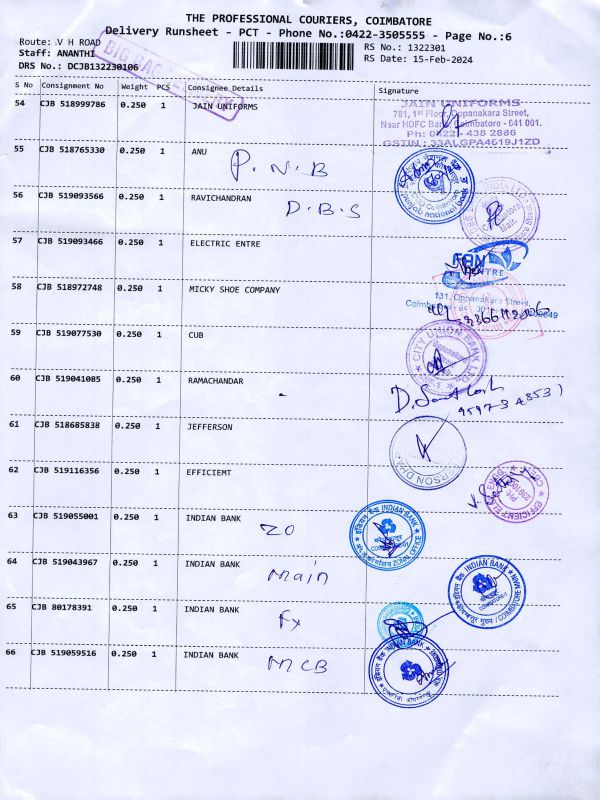 THE PROFESSIONAL COURIERS, COIMBATORE
Delivery Runsheet - PCT - Phone No.:0422-3505555 - Page No.:6
Route: V H ROAD
Staff: ANANTHI
DRS No.: DCJB132230106
RS No.: 1322301
RS Date: 15-Feb-2024
S No Consignment No Weight PCS Consignee Details Signature
54 CJB 518999786 0.250 1 JAIN UNIFORMS
JAIN UNIFORMS
781, 1st Floor, Oppanakara Street,
Near HDFC Bank, Coimbatore - 641 001.
Ph: 0422 - 438 2886
GSTIN : 33ALGPA4619J1ZD
55 CJB 518765330 0.250 1 ANU
P.N.B
punjab national bank
56 CJB 519093566 0.250 1 RAVICHANDRAN
D.B.S
57 CJB 519093466 0.250 1 ELECTRIC ENTRE
FAN
CENTRE
131, Oppanakara Street,
58 CJB 518972748 0.250 1 MICKY SHOE COMPANY
59 CJB 519077530 0.250 1 CUB
CITY UNION BANK LTD
60 CJB 519041085 0.250 1 RAMACHANDAR
61 CJB 518685838 0.250 1 JEFFERSON
62 CJB 519116356 0.250 1 EFFICIEMT
63 CJB 519055001 0.250 1 INDIAN BANK
ZO
इंडियन बैंक INDIAN BANK
ZONAL OFFICE
64 CJB 519043967 0.250 1 INDIAN BANK
Main
INDIAN BANK
COIMBATORE MAIN
65 CJB 80178391 0.250 1 INDIAN BANK
Fx
66 CJB 519059516 0.250 1 INDIAN BANK
MCB
INDIAN BANK